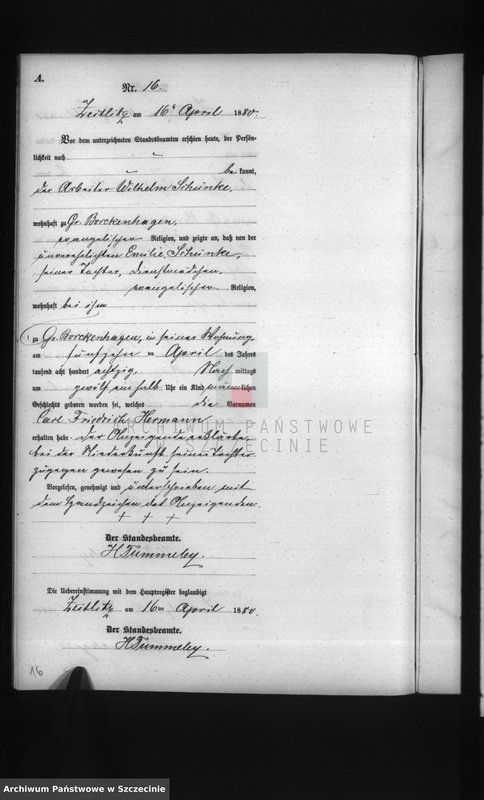 A.
Nr. 16
Zeitlitz am 16t April 1880.
Vor dem unterzeichneten Standesbeamten erschien heute, der Persön-
lichkeit nach
be kannt,
der Arbeiter Wilhelm Schünke,
wohnhaft zu Gr. Borckenhagen,
evangelischer Religion, und zeigte an, daß von der
unverehelichten Emilie, Schünke,
seiner Tochter, Dienstmädchen,
evangelischer Religion,
wohnhaft bei ihm
zu Gr. Borckenhagen, in seiner Wohnung,
am fünfzehn ten April des Jahres
tausend acht hundert achtzig, Nach mittags
um zwölf ein halb Uhr ein Kind männlichen
Geschlechts geboren worden sei, welches die Vornamen
Carl Friedrich Hermann
erhalten habe. der Anzeigende erklärte,
bei der Niederkunft seiner Tochter
zugegen gewesen zu sein.
Vorgelesen, genehmigt und unterschrieben mit
dem Handzeichen des Anzeigenden.
+ + +
Der Standesbeamte.
H Tümmeley.
Die Uebereinstimmung mit dem Hauptregister beglaubigt
Zeitlitz am 16ten April 1880.
Der Standesbeamte.
H Tümmeley.
16
ARCHIWUM PAŃSTWOWE
W SZCZECINIE
Archiwum Państwowe w Szczecinie